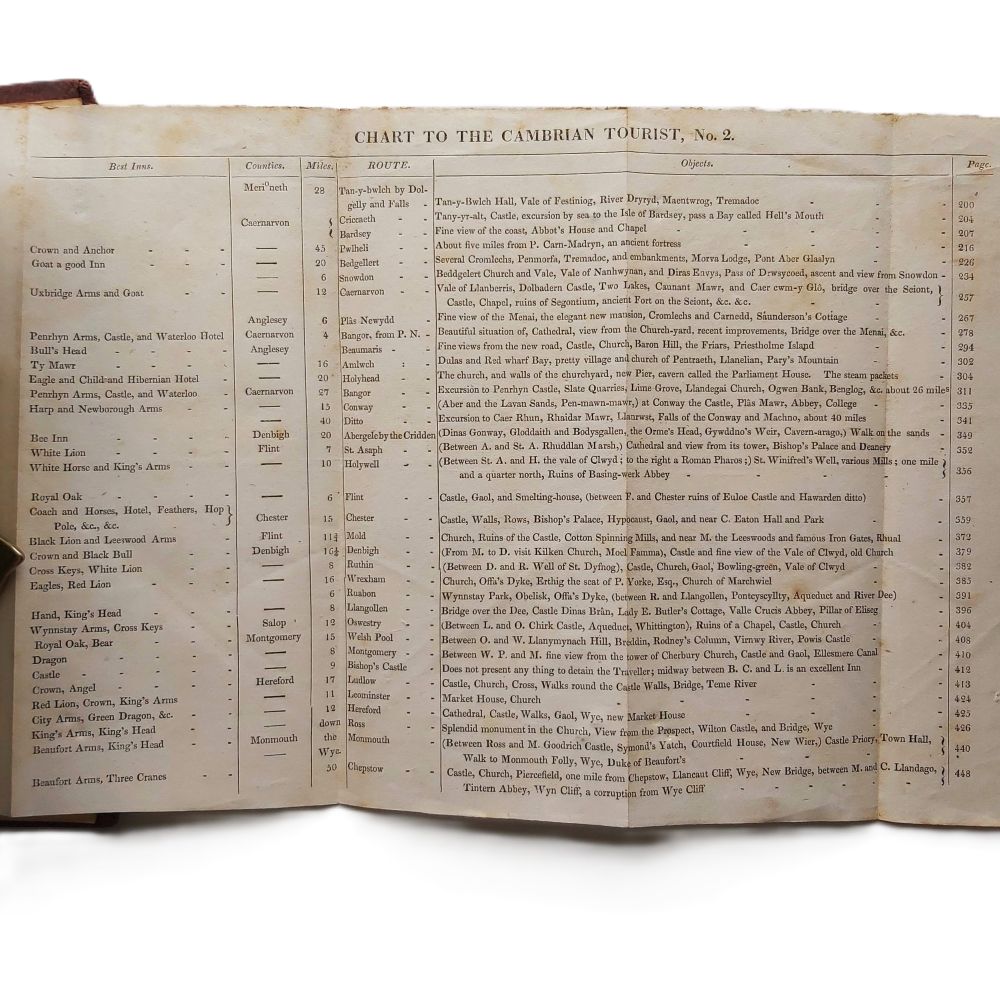 CHART TO THE CAMBRIAN TOURIST, No. 2.
Best Inns. Counties. Miles. ROUTE. Objects. Page.
Merioneth 28 Tan-y-bwlch by Dol-
gelly and Falls - Tan-y-Bwlch Hall, Vale of Festiniog, River Dryryd, Maentwrog, Tremadoc - - 200
Caernarvon { Criccaeth - - Tany-yr-alt, Castle, excursion by sea to the Isle of Bardsey, pass a Bay called Hell's Mouth - 204
Bardsey - - Fine view of the coast, Abbot's House and Chapel - - - - 207
Crown and Anchor - - - — 45 Pwlheli - - About five miles from P. Carn-Madryn, an ancient fortress - - - - 216
Goat a good Inn - - - — 20 Bedgellert - - Several Cromlechs, Penmorfa, Tremadoc, and embankments, Morva Lodge, Pont Aber Glaslyn - 226
— 6 Snowdon - - Beddgelert Church and Vale, Vale of Nanhwynan, and Diras Envys, Pass of Drwsycoed, ascent and view from Snowdon - 234
Uxbridge Arms and Goat - - — 12 Caernarvon - - Vale of Llanberris, Dolbadern Castle, Two Lakes, Caunant Mawr, and Caer cwm-y Glô, bridge over the Seiont, }
Castle, Chapel, ruins of Segontium, ancient Fort on the Sciont, &c. &c. - - 257
Anglesey 6 Plâs Newydd - Fine view of the Menai, the elegant new mansion, Cromlechs and Carnedd, Saunderson's Cottage - 267
Penrhyn Arms, Castle, and Waterloo Hotel Caernarvon 4 Bangor, from P. N. - Beautiful situation of, Cathedral, view from the Church-yard, recent improvements, Bridge over the Menai, &c. - 278
Bull's Head - - - - Anglesey Beaumaris - - Fine views from the new road, Castle, Church, Baron Hill, the Friars, Priestholme Island - - 294
Ty Mawr - - - - — 16 Amlwch : - Dulas and Red wharf Bay, pretty village and church of Pentraeth, Llanelian, Pary's Mountain - - 302
Eagle and Child and Hibernian Hotel — 20 Holyhead - - The church, and walls of the churchyard, new Pier, cavern called the Parliament House. The steam packets - 304
Penrhyn Arms, Castle, and Waterloo Caernarvon 27 Bangor - - Excursion to Penrhyn Castle, Slate Quarries, Lime Grove, Llandegai Church, Ogwen Bank, Benglog, &c. about 26 miles 311
Harp and Newborough Arms - - — 15 Conway - - (Aber and the Lavan Sands, Pen-mawn-mawr,) at Conway the Castle, Plâs Mawr, Abbey, College - - 335
— 40 Ditto - - Excursion to Caer Rhun, Rhaidar Mawr, Llanrwst, Falls of the Conway and Machno, about 40 miles - 341
Bee Inn - - - - Denbigh 20 Abergele by the Cridden (Dinas Gonway, Gloddaith and Bodysgallen, the Orme's Head, Gywddno's Weir, Cavern-arago,) Walk on the sands - 349
White Lion - - - - Flint 7 St. Asaph - - (Between A. and St. A. Rhuddlan Marsh,) Cathedral and view from its tower, Bishop's Palace and Deanery - 352
White Horse and King's Arms - - — 10 Holywell - - (Between St. A. and H. the vale of Clwyd; to the right a Roman Pharos;) St. Winifred's Well, various Mills; one mile }
and a quarter north, Ruins of Basing-werk Abbey - - - - 356
Royal Oak - - - - — 6 Flint - - Castle, Gaol, and Smelting-house, (between F. and Chester ruins of Euloe Castle and Hawarden ditto) - 357
Coach and Horses, Hotel, Feathers, Hop }
Pole, &c., &c. Chester 15 Chester - - Castle, Walls, Rows, Bishop's Palace, Hypocaust, Gaol, and near C. Eaton Hall and Park - - 359
Black Lion and Leeswood Arms Flint 11½ Mold - - Church, Ruins of the Castle, Cotton Spinning Mills, and near M. the Leeswoods and famous Iron Gates, Rhual 372
Crown and Black Bull - - Denbigh 16½ Denbigh - - (From M. to D. visit Kilken Church, Moel Famma), Castle and fine view of the Vale of Clwyd, old Church 379
Cross Keys, White Lion - - — 8 Ruthin - - (Between D. and R. Well of St. Dyfnog), Castle, Church, Gaol, Bowling-green, Vale of Clwyd - 382
Eagles, Red Lion - - - — 16 Wrexham - - Church, Offa's Dyke, Erthig the seat of P. Yorke, Esq., Church of Marchwiel - - 385
— 6 Ruabon - - Wynnstay Park, Obelisk, Offa's Dyke, (between R. and Llangollen, Ponteyscyllty, Aqueduct and River Dee) 391
Hand, King's Head - - - — 8 Llangollen - - Bridge over the Dee, Castle Dinas Brân, Lady E. Butler's Cottage, Valle Crucis Abbey, Pillar of Eliseg - 396
Wynnstay Arms, Cross Keys - - Salop 12 Oswestry - - (Between L. and O. Chirk Castle, Aqueduct, Whittington), Ruins of a Chapel, Castle, Church - - 404
Royal Oak, Bear - - - Montgomery 15 Welsh Pool - - Between O. and W. Llanymynach Hill, Breddin, Rodney's Column, Virnwy River, Powis Castle - - 408
Dragon - - - - — 8 Montgomery - - Between W. P. and M. fine view from the tower of Cherbury Church, Castle and Gaol, Ellesmere Canal - 410
Castle - - - - — 9 Bishop's Castle - Does not present any thing to detain the Traveller; midway between B. C. and L. is an excellent Inn - 412
Crown, Angel - - - - Hereford 17 Ludlow - - Castle, Church, Cross, Walks round the Castle Walls, Bridge, Teme River - - - 413
Red Lion, Crown, King's Arms - — 11 Leominster - - Market House, Church - - - - 424
City Arms, Green Dragon, &c. - - — 12 Hereford - - Cathedral, Castle, Walks, Gaol, Wye, new Market House - - - 425
King's Arms, King's Head - - — down Ross - - Splendid monument in the Church, View from the Prospect, Wilton Castle, and Bridge, Wye - - 426
Beaufort Arms, King's Head - - Monmouth the Monmouth - - (Between Ross and M. Goodrich Castle, Symond's Yatch, Courtfield House, New Wier,) Castle Priory, Town Hall, }
— Wye. Walk to Monmouth Folly, Wye, Duke of Beaufort's - - - 440
Beaufort Arms, Three Cranes - - 50 Chepstow - - Castle, Church, Piercefield, one mile from Chepstow, Llancaut Cliff, Wye, New Bridge, between M. and C. Llandago, }
Tintern Abbey, Wyn Cliff, a corruption from Wye Cliff - - - - 448